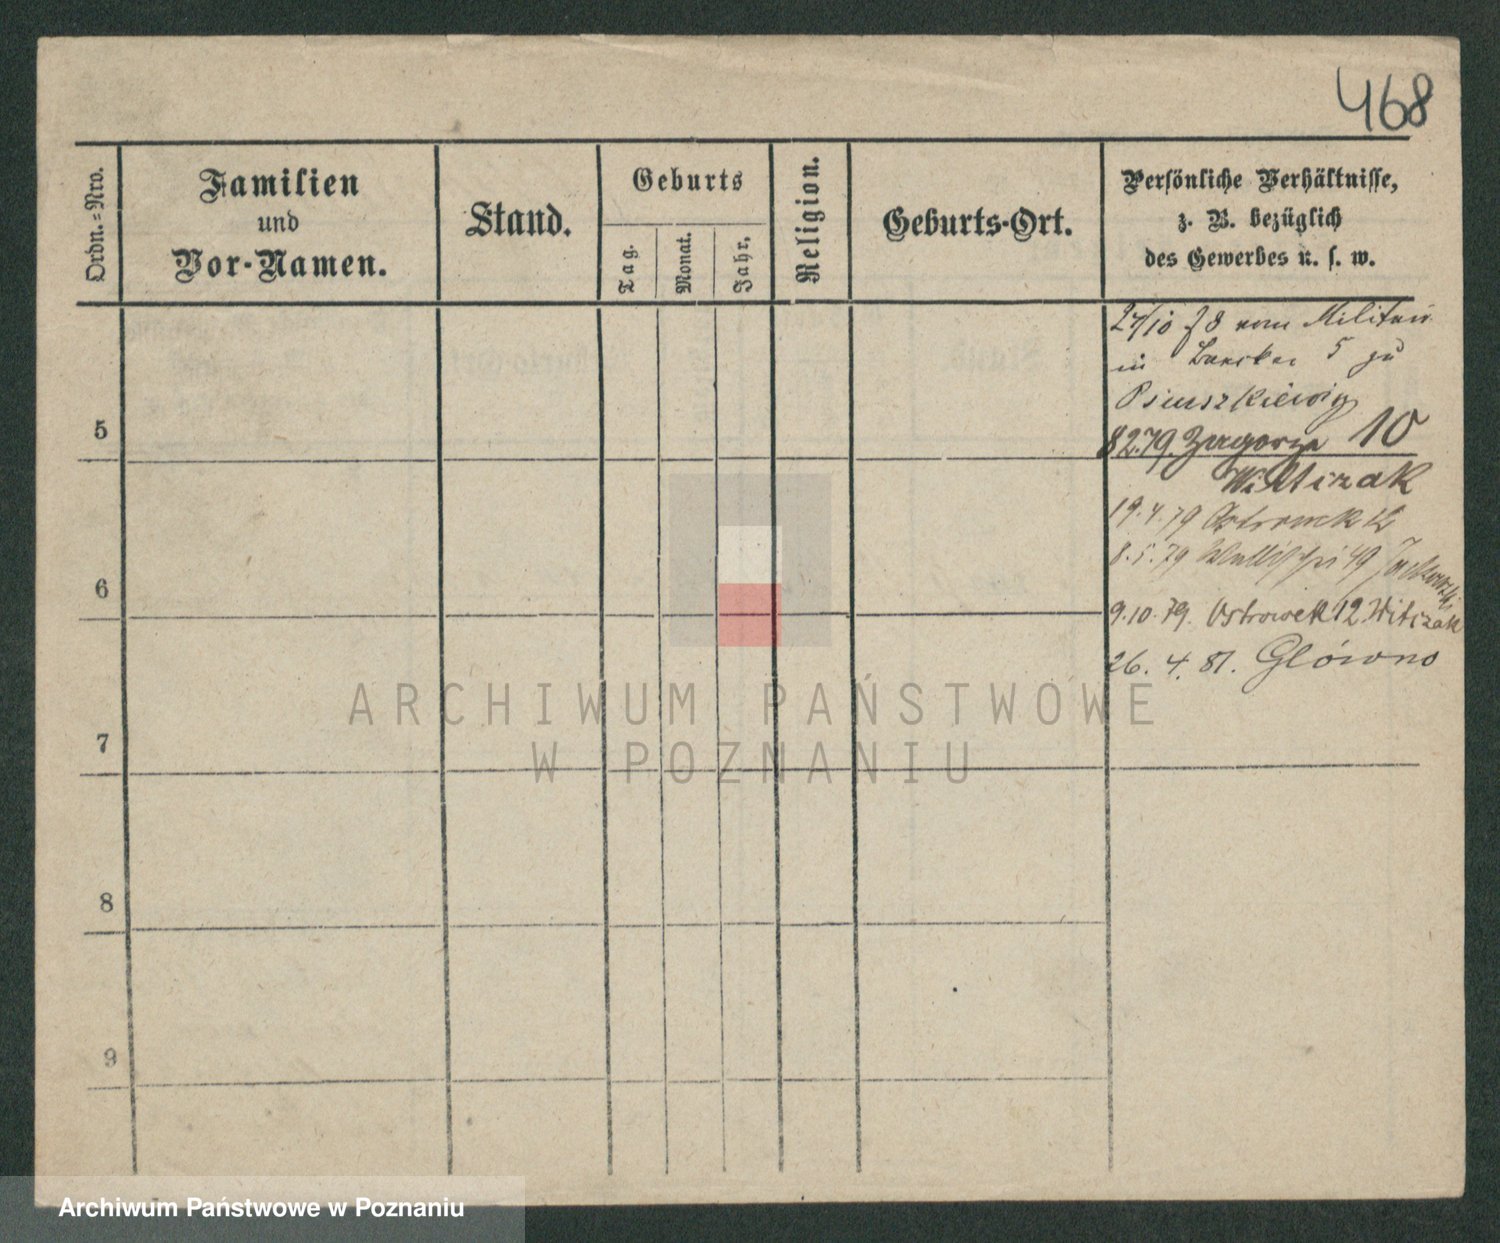 468
Ordn.=Nro.
Familien
und
Vor-Namen.
Stand.
Geburts
Tag.
Monat.
Jahr.
Religion.
Geburts-Ort.
Persönliche Verhältnisse,
z. B. bezüglich
des Gewerbes u. s. w.
27/10 78 vom Militair
in 5 zu
5
8 2.79. Zagorze 10
Wittczak
19.4.79 Ostrowek 12
8.5.79 Wallischei 49 Jackowski
6
9.10.79. Ostrowek 12 Witczak
26. 4. 81. Glówno
ARCHIWUM PAŃSTWOWE
W POZNANIU
7
8
9
Archiwum Państwowe w Poznaniu